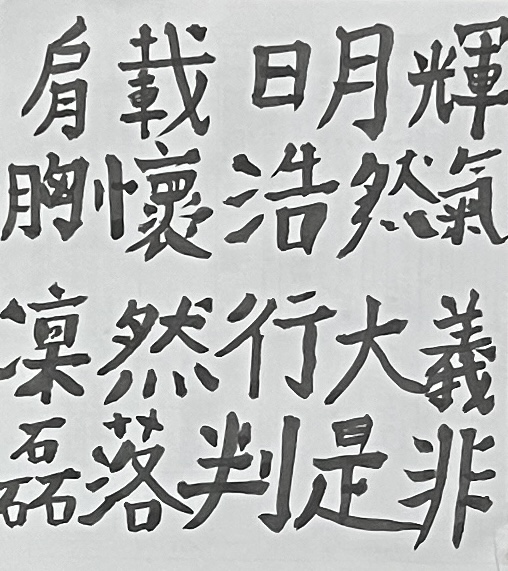 肩載日月輝
胸懷浩然氣
凜然行大義
磊落判是非